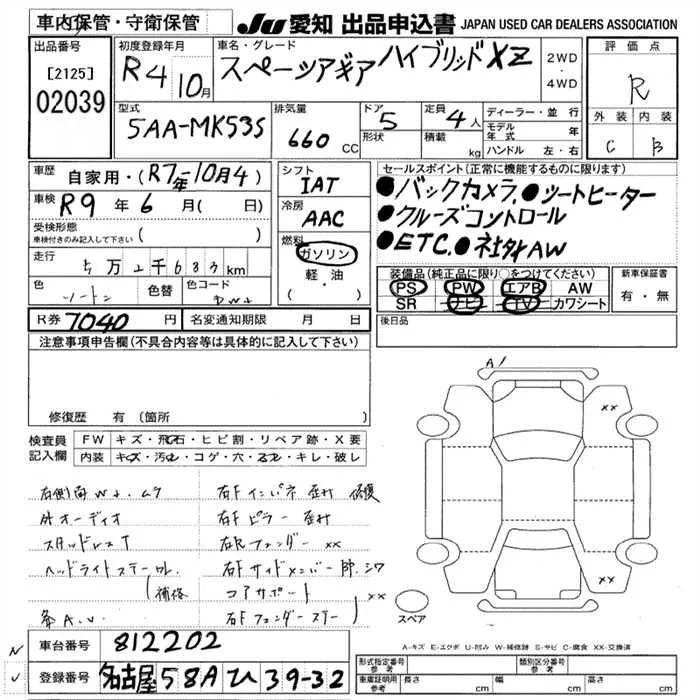 車内保管・守衛保管
JU 愛知 出品申込書 JAPAN USED CAR DEALERS ASSOCIATION
出品番号
[2125]
02039
初度登録年月
R4 10月
車名・グレード
スペーシアギア ハイブリッドXZ
2WD
・
4WD
評価点
R
外装 内装
C B
型式
5AA-MK53S
排気量
660 CC
ドア
5
形状
定員
4人
積載
kg
ディーラー・並行
モデル年式 年
ハンドル 左・右
車歴
自家用・(R7年-10月4)
車検
R9年 6月( 日)
受検形態
車検付きのみ記入して下さい ( )
走行
5万2千633km
色
ツートン
色替
色コード
シフト
IAT
冷房
AAC
燃料
ガソリン
軽・油
・( )
セールスポイント(正常に機能するものに限ります)
●バックカメラ.●シートヒーター
●クルーズコントロール
●ETC.●社外AW
装備品(純正品に限り○をつけてください)
PS PW エアB AW
SR ナビ TV カワシート
新車保証書
有・無
後日品
R券 7040 円
名変通知期限 月 日
注意事項申告欄(不具合内容等は具体的に記入して下さい)
修復歴 有(箇所 )
検査員記入欄
FW キズ・飛石・ヒビ割・リペア跡・X要
内装 キズ・汚れ・コゲ・穴・スレ・キレ・破レ
右側面W+.ムラ
外オーディオ
スタッドレスT
ヘッドライトステー
(補修
右Fインパネ 歪み 修復
右Fピラー 歪み
右Rフェンダー xx
右Fサイドメンバー 師.シワ
コアサポート xx
右Fフェンダーステー
A1
xx
xx
スペア
A-キズ E-エクボ U-凹み W-補修跡 S-サビ C-腐食 XX-交換済
車台番号
812202
登録番号
名古屋 58A ひ 39-32
形式指定番号
参考
類別区分番号
参考
車庫証明用
参考
長さ cm
幅 cm
高さ cm